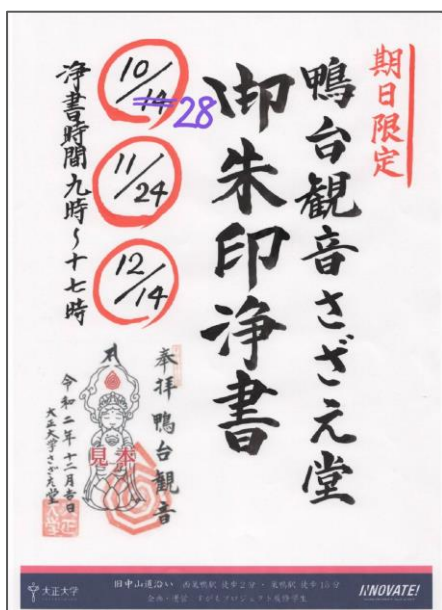 期日限定
鴨台観音さざえ堂
御朱印浄書
10/14 28
11/24
12/14
浄書時間九時~十七時
奉拝 鴨台観音
見本
令和二年十二月吉日
大正大学さざえ堂
大正大学
旧中山道沿い 西巣鴨駅 徒歩2分・巣鴨駅 徒歩15分
企画・運営 すがもプロジェクト履修学生
INNOVATE!